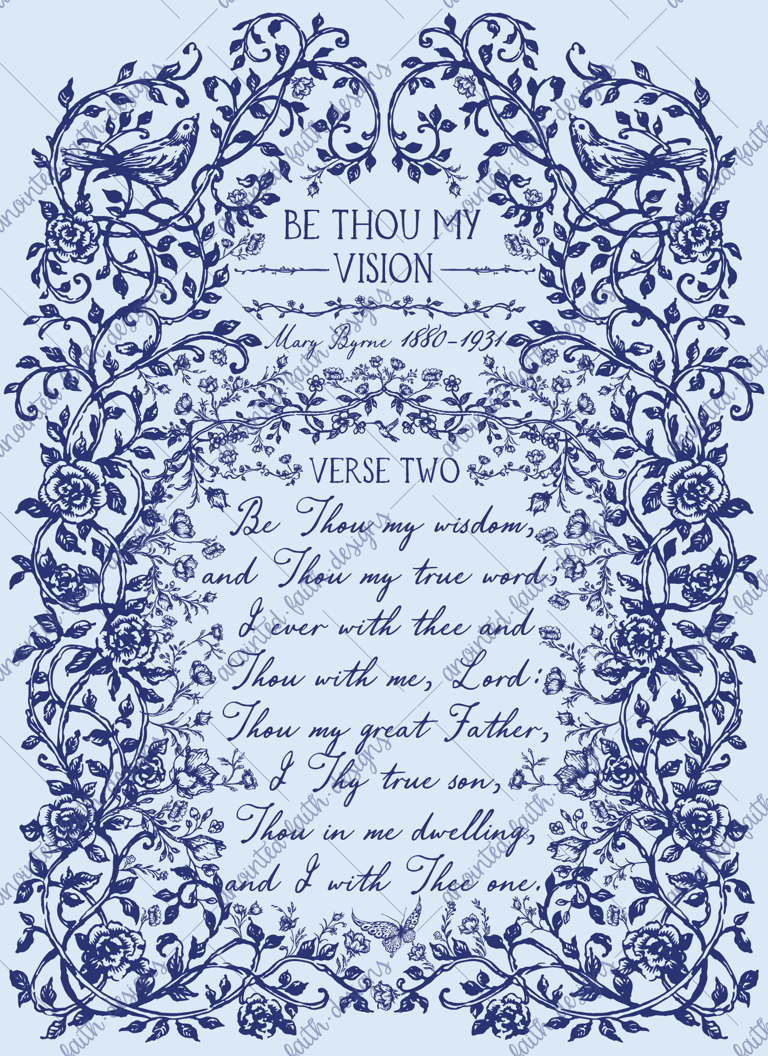 BE THOU MY
VISION
Mary Byrne 1880-1931
VERSE TWO
Be Thou my wisdom,
and Thou my true word,
I ever with thee and
Thou with me, Lord:
Thou my great Father,
I Thy true son,
Thou in me dwelling,
and I with Thee one.
anointed.faith.designs